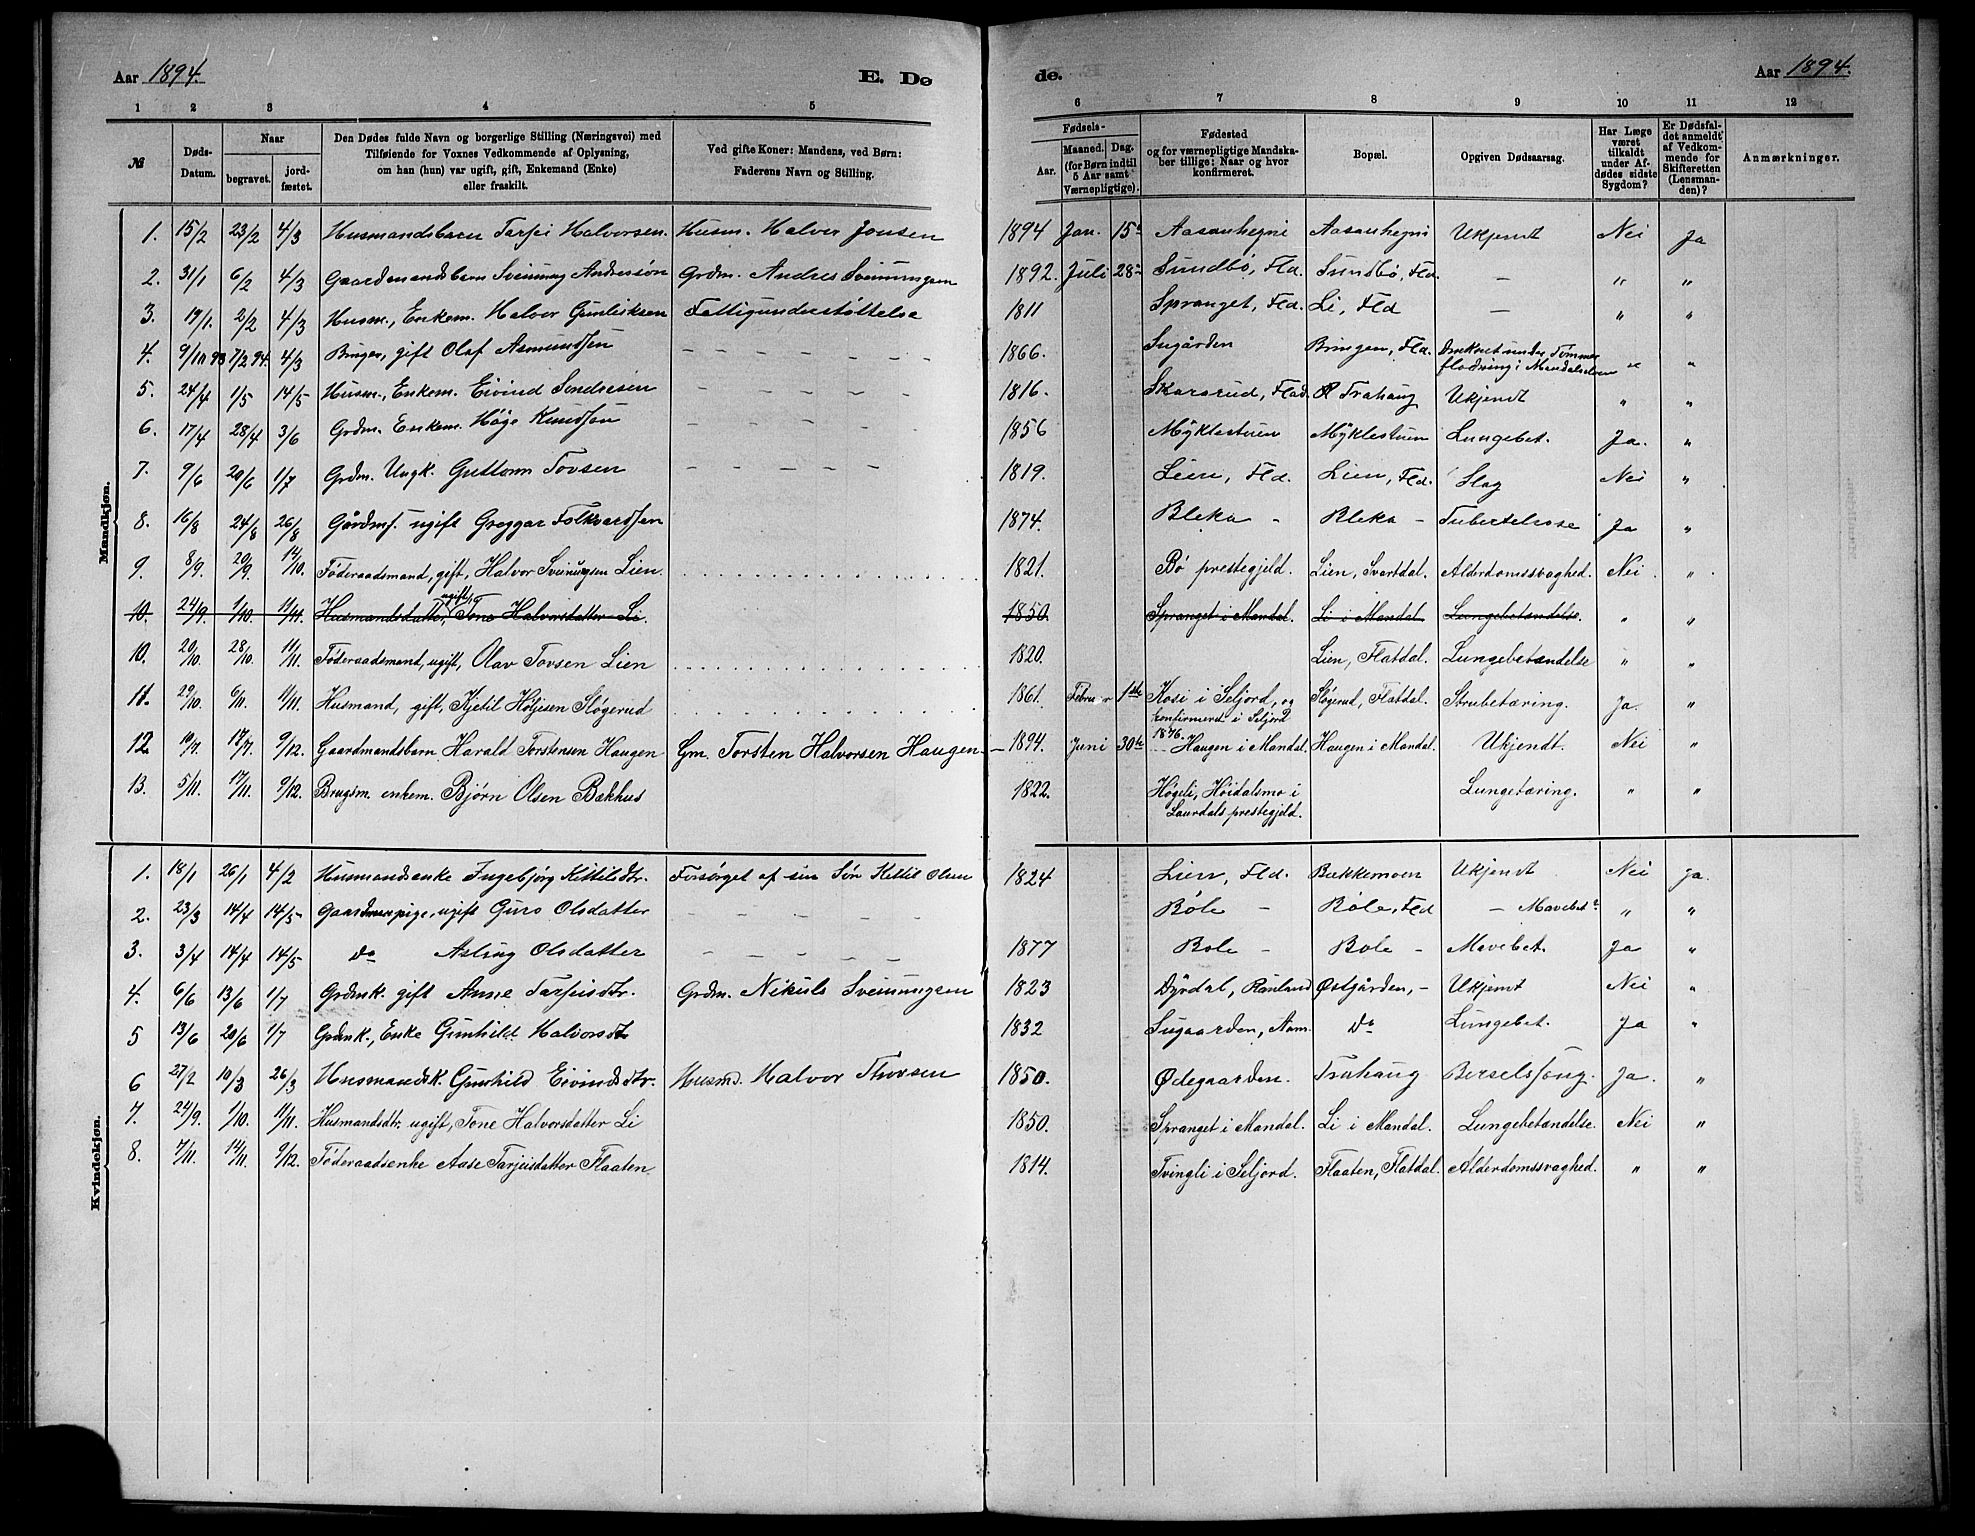 Aar 1894. E. Dø
de. Aar 1894.
1 2 3 4 5
6 7 8 9 10 11 12
№ Døds-Datum. Naar begravet. jord-fæstet. Den Dødes fulde Navn og borgerlige Stilling (Næringsvei) med Tilføiende for Voxnes Vedkommende af Oplysning, om han (hun) var ugift, gift, Enkemand (Enke) eller fraskilt. Ved gifte Koner: Mandens, ved Børn: Faderens Navn og Stilling.
Fødsels- Aar. Maaned. Dag. (for Børn indtil 5 Aar samt Værnepligtige). Fødested og for værnepligtige Mandskaber tillige: Naar og hvor konfirmeret. Bopæl. Opgiven Dødsaarsag. Har Læge været tilkaldt under Afdødes sidste Sygdom? Er Dødsfaldet anmeldt af Vedkommende for Skifteretten (Lensmanden)? Anmærkninger.
Mandkjøn.
1. 15/2 23/2 4/3 Husmandsbarn Tarjei Halvorsen. Husm. Halvor Jonsen 1894 Jan. 15 Aasanhegni Aasanhegni Ukjendt Nei Ja
2. 31/1 6/2 4/3 Gaardmandsbarn Sveinung Andersøn Grdm. Andres Sveinungsen 1892. Juli 28 Sundbø, Fld. Sundbø, Fld. — " "
3. 19/1. 2/2 4/3 Husm., Enkem. Halvor Gunleiksen Fattigunderstøttelse 1811 Spranget, Fld. Li, Fld — " "
4. 9/10 93 7/2 94. 4/3 Bruger, gift Olaf Asmundsen — — — — — 1866. Sugården Bringen, Fld. Druknet under Tømmer flødning i Mandalselven " "
5. 24/4 1/5 14/5 Husm., Enkem. Eivind Sondresen — — — — — 1816. Skarsrud, Flad. Trahaug Ukjendt " "
6. 17/4 28/4 3/6 Grdm. Enkem. Høge Knudsen — — — — — 1856 Mÿklestuen Mÿklestuen Lungebet. Ja. "
7. 9/6 20/6 1/7 Grdm. Ungk. Guttorm Tovsen — — — — — 1819. Lien, Fld. Lien, Fld. Slag Nei "
8. 16/8 24/8 26/8 Gårdms. ugift Greggar Folkvardsen 1874. Bleka - Bleka - Tubertelrose Ja "
9. 8/9. 20/9. 14/10. Føderaadsmand, gift, Halvor Sveinugsen Lien. 1821. Bø prestegjeld. Lien, Svartdal. Alderdomssvaghed. Nei "
10. 24/9. 1/10. 11/11. Husmandsdatter, ugift, Tone Halvorsdatter Li. 1850. Spranget i Mandal. Li i Mandal. Lungebetændelse. " "
10. 20/10. 28/10. 11/11. Føderaadsmand, ugift, Olav Tovsen Lien 1820. Lien, Flatdal. Lungebetændelse " "
11. 29/10. 6/11. 11/11. Husmand, gift, Kjetil Høljesen Sløgerud 1861. Februar 1ste Kosi i Seljord, og Sløgerud, Flatdal. Strubetæring. Ja. "
konfirmeret i Seljord
1876.
12. 10/7. 17/7. 9/12. Gaardmandsbarn Harald Torstensen Haugen Gm. Torsten Halvorsen Haugen. — 1894. Juni 30te Haugen i Mandal. Haugen i Mandal. Ukjendt. Nei "
13. 5/11. 17/11. 9/12. Brugsm. enkem. Bjørn Olsen Bakhus 1822. Høgeli, Høidalsmo i Lungetæring. " "
Laurdals prestegjeld.
Kvindekjøn.
1. 18/1 26/1 4/2 Husmandsenke Ingebjørg Kittilsdtr. Forsørget af sin Søn Kittil Olsen 1824 Lien, Fld. Bakkemoen Ukjendt Nei Ja.
2. 23/3 14/4 14/5 Gaardmanpige, ugift Guro Olsdatter — — — — — Bøle — Bøle, Fld — Mavebet " "
3. 3/4 14/4 14/5 do Asling Olsdatter — — — — — 1877 Bole — Bole — Mavebet. Ja "
4. 6/6 13/6 1/7 Grdmk. gift Anne Tarjeisdtr. Grdm. Nikuls Sveinungsen 1823 Dÿrdal, Rauland Østgården, - Ukjent Nei "
5 13/6 20/6 1/7 Grdmk., Enke Gunhild Halvorsdtr 1832 Sugaarden, Aam. do Lungebet. Ja "
6 27/2 10/3 26/3 Husmandsk. Gunhild Eivindsdtr. Husmd. Halvor Thorsen 1850. Ødegaarden. Trahaug Berselsseng. Ja. "
7. 24/9. 1/10. 11/11. Husmandsdtr. ugift, Tone Halvorsdatter Li 1850. Spranget i Mandal. Li i Mandal. Lungebetændelse. Nei "
8. 7/11. 14/11. 9/12. Føderaadsenke Aase Tarjeisdatter Flaaten 1814. Tvingli i Seljord. Flaaten, Flatdal. Alderdomssvaghed. " "